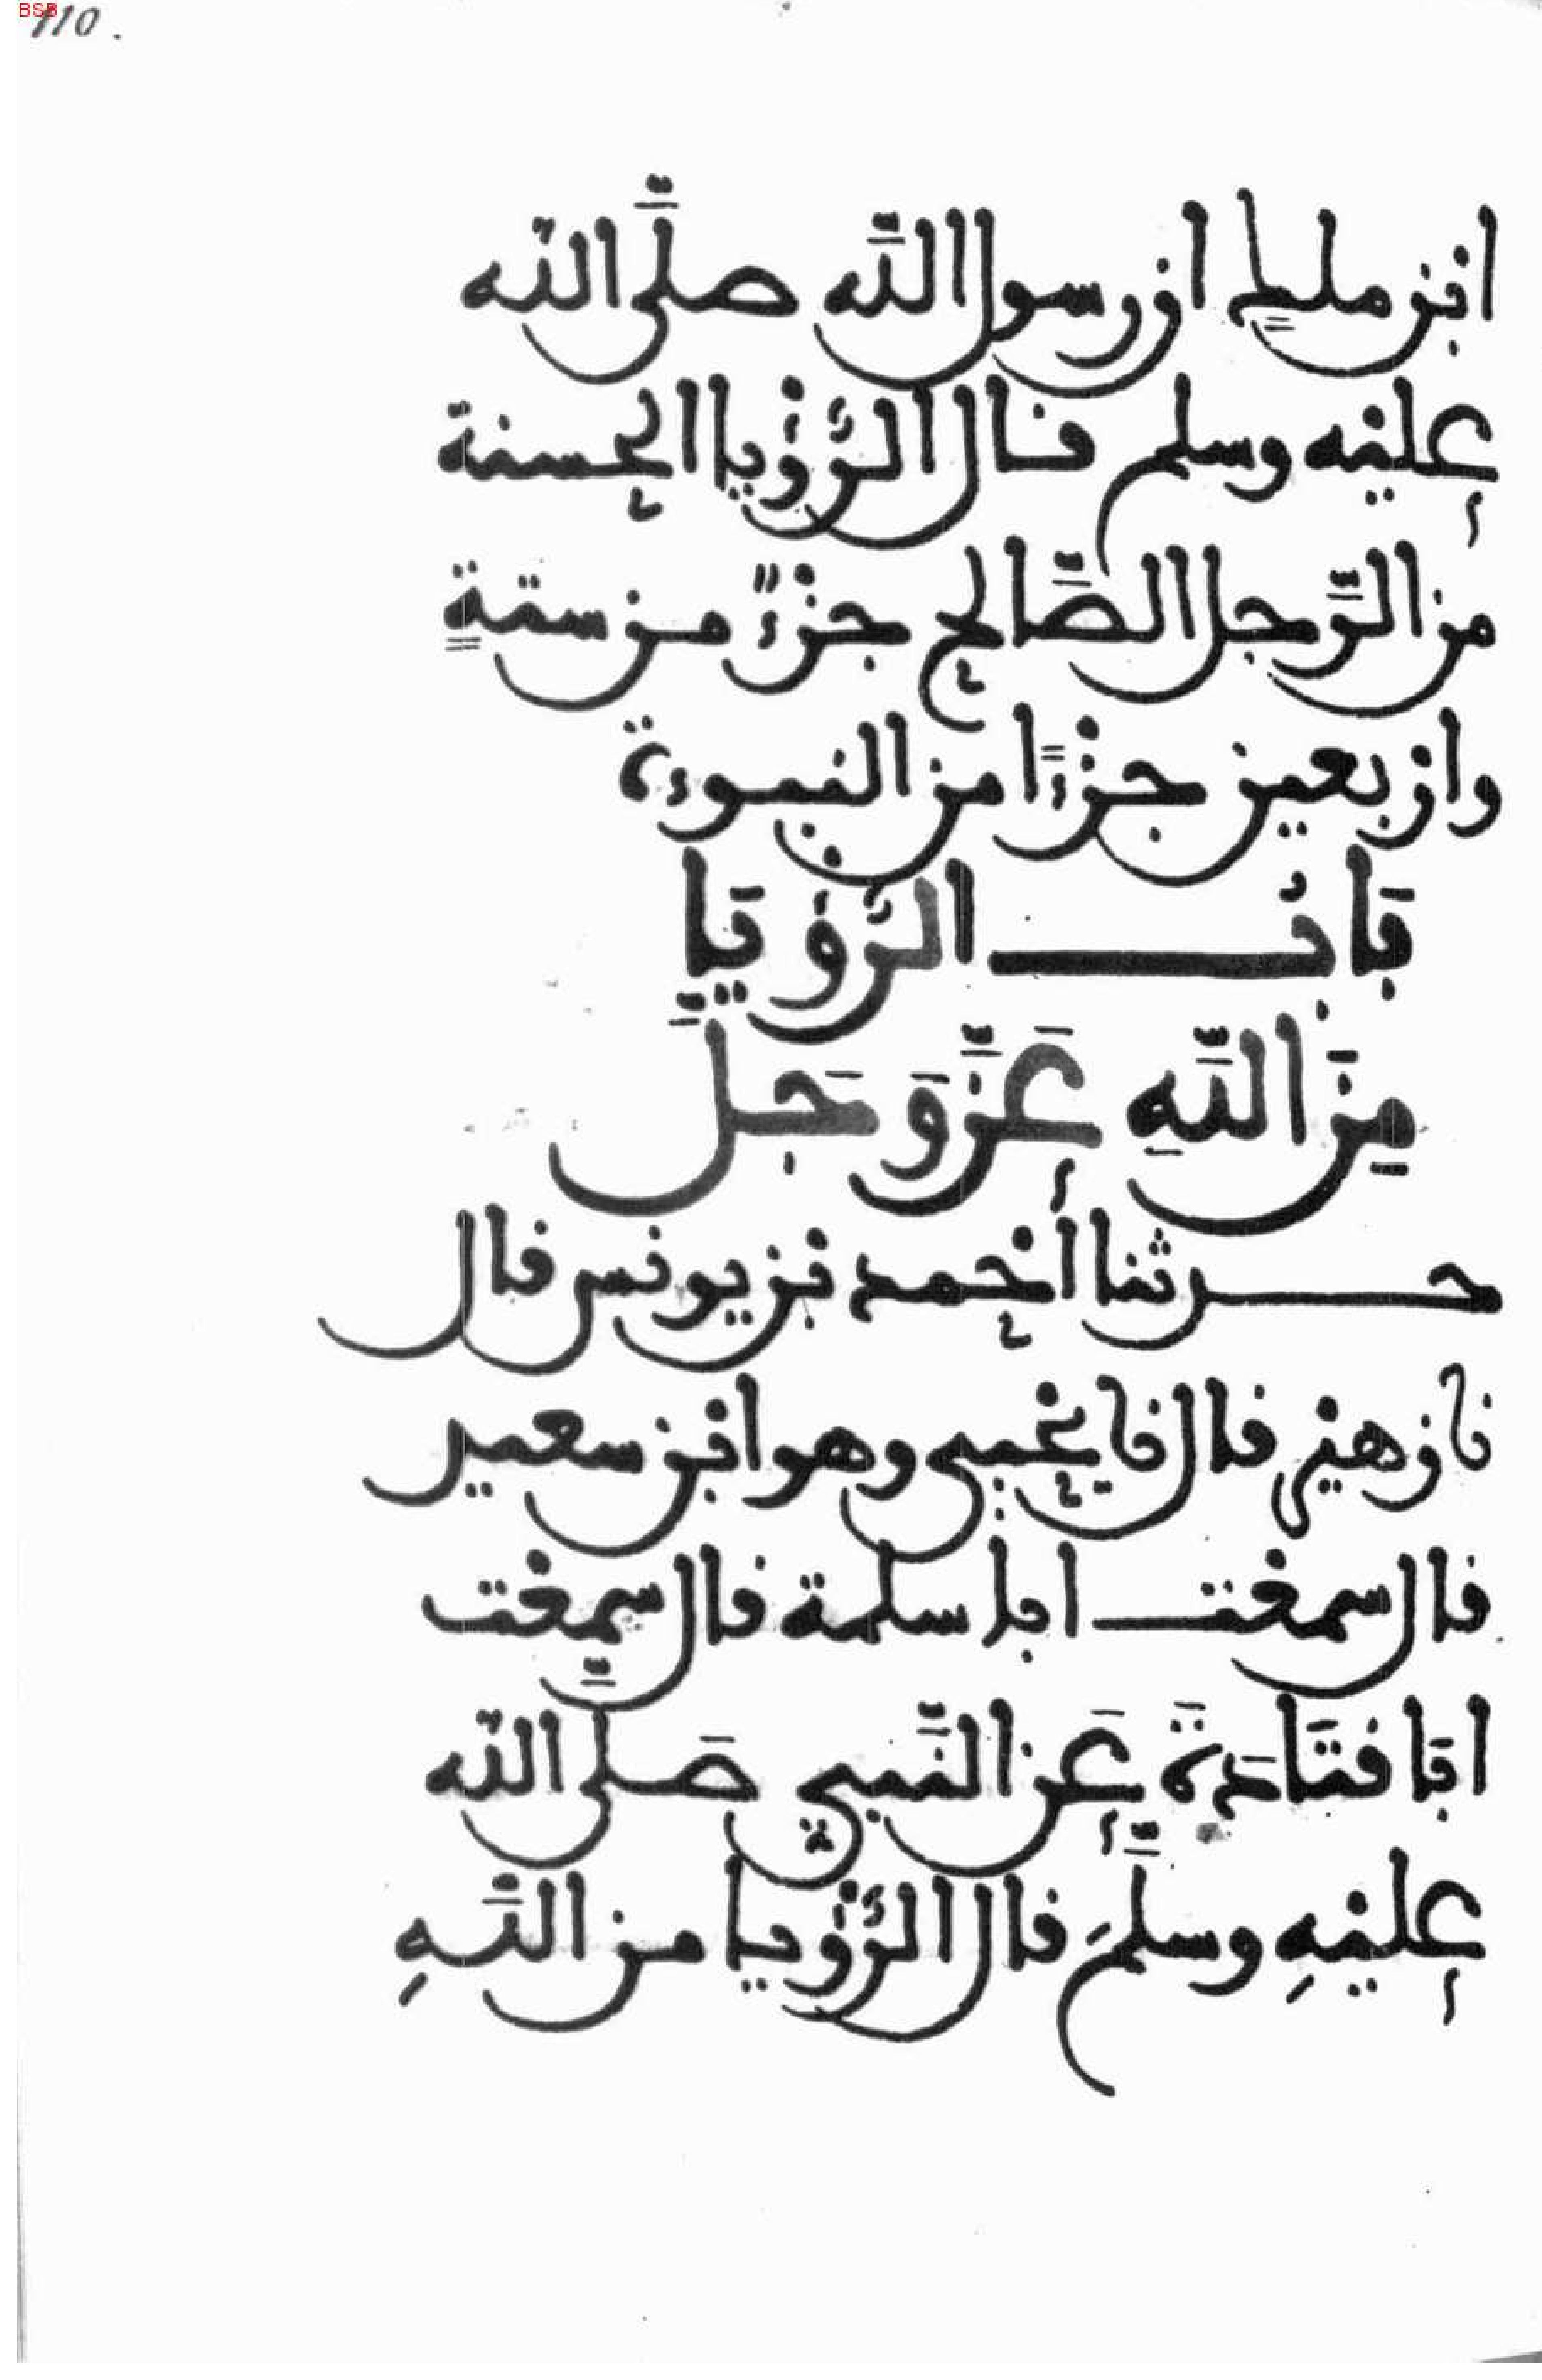 BSB
110.
ابْن ملكٍ ان رسول اللَّه صلَّى اللّه
عليْه وسلم قال الرُّؤْيا الحسنة
من الرَّجل الصَّالح جزْءٌ من ستةٍ
وارْبعين جزْءًا من النبوءة
بَابُ الرُّؤْيَا
مِنَ اللَّهِ عَزَّ وَجَلَّ
حدثنا أحْمد بْن يونس قال
نا زهيْر قال نا يحْيى وهو ابْن سعيد
قال سمعْت ابا سلمة قال سمعْت
ابَا قتَادَةَ عَن النَّبيِّ صَلَّى اللّه
عليْهِ وسلَّمَ قال الرُّؤْيا من اللَّهِ